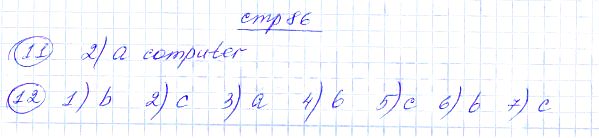 стр 86
11 2) a computer
12 1) b 2) c 3) a 4) b 5) c 6) b 7) c